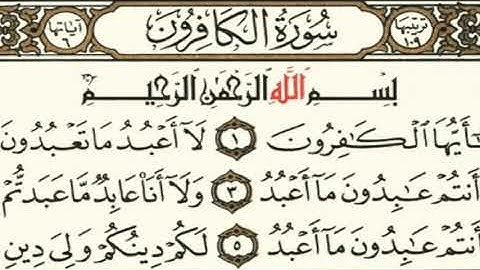 ترتيبها ١٠٩ سُورَةُ الكَافِرُونَ آياتها ٦
بِسْمِ اللَّهِ الرَّحْمَٰنِ الرَّحِيمِ
ـٰٓأَيُّهَا ٱلْكَٰفِرُونَ ١ لَآ أَعْبُدُ مَا تَعْبُدُونَ
أَنتُمْ عَٰبِدُونَ مَآ أَعْبُدُ ٣ وَلَآ أَنَا۠ عَابِدٌ مَّا عَبَدتُّمْ
أَنتُمْ عَٰبِدُونَ مَآ أَعْبُدُ ٥ لَكُمْ دِينُكُمْ وَلِىَ دِينِ